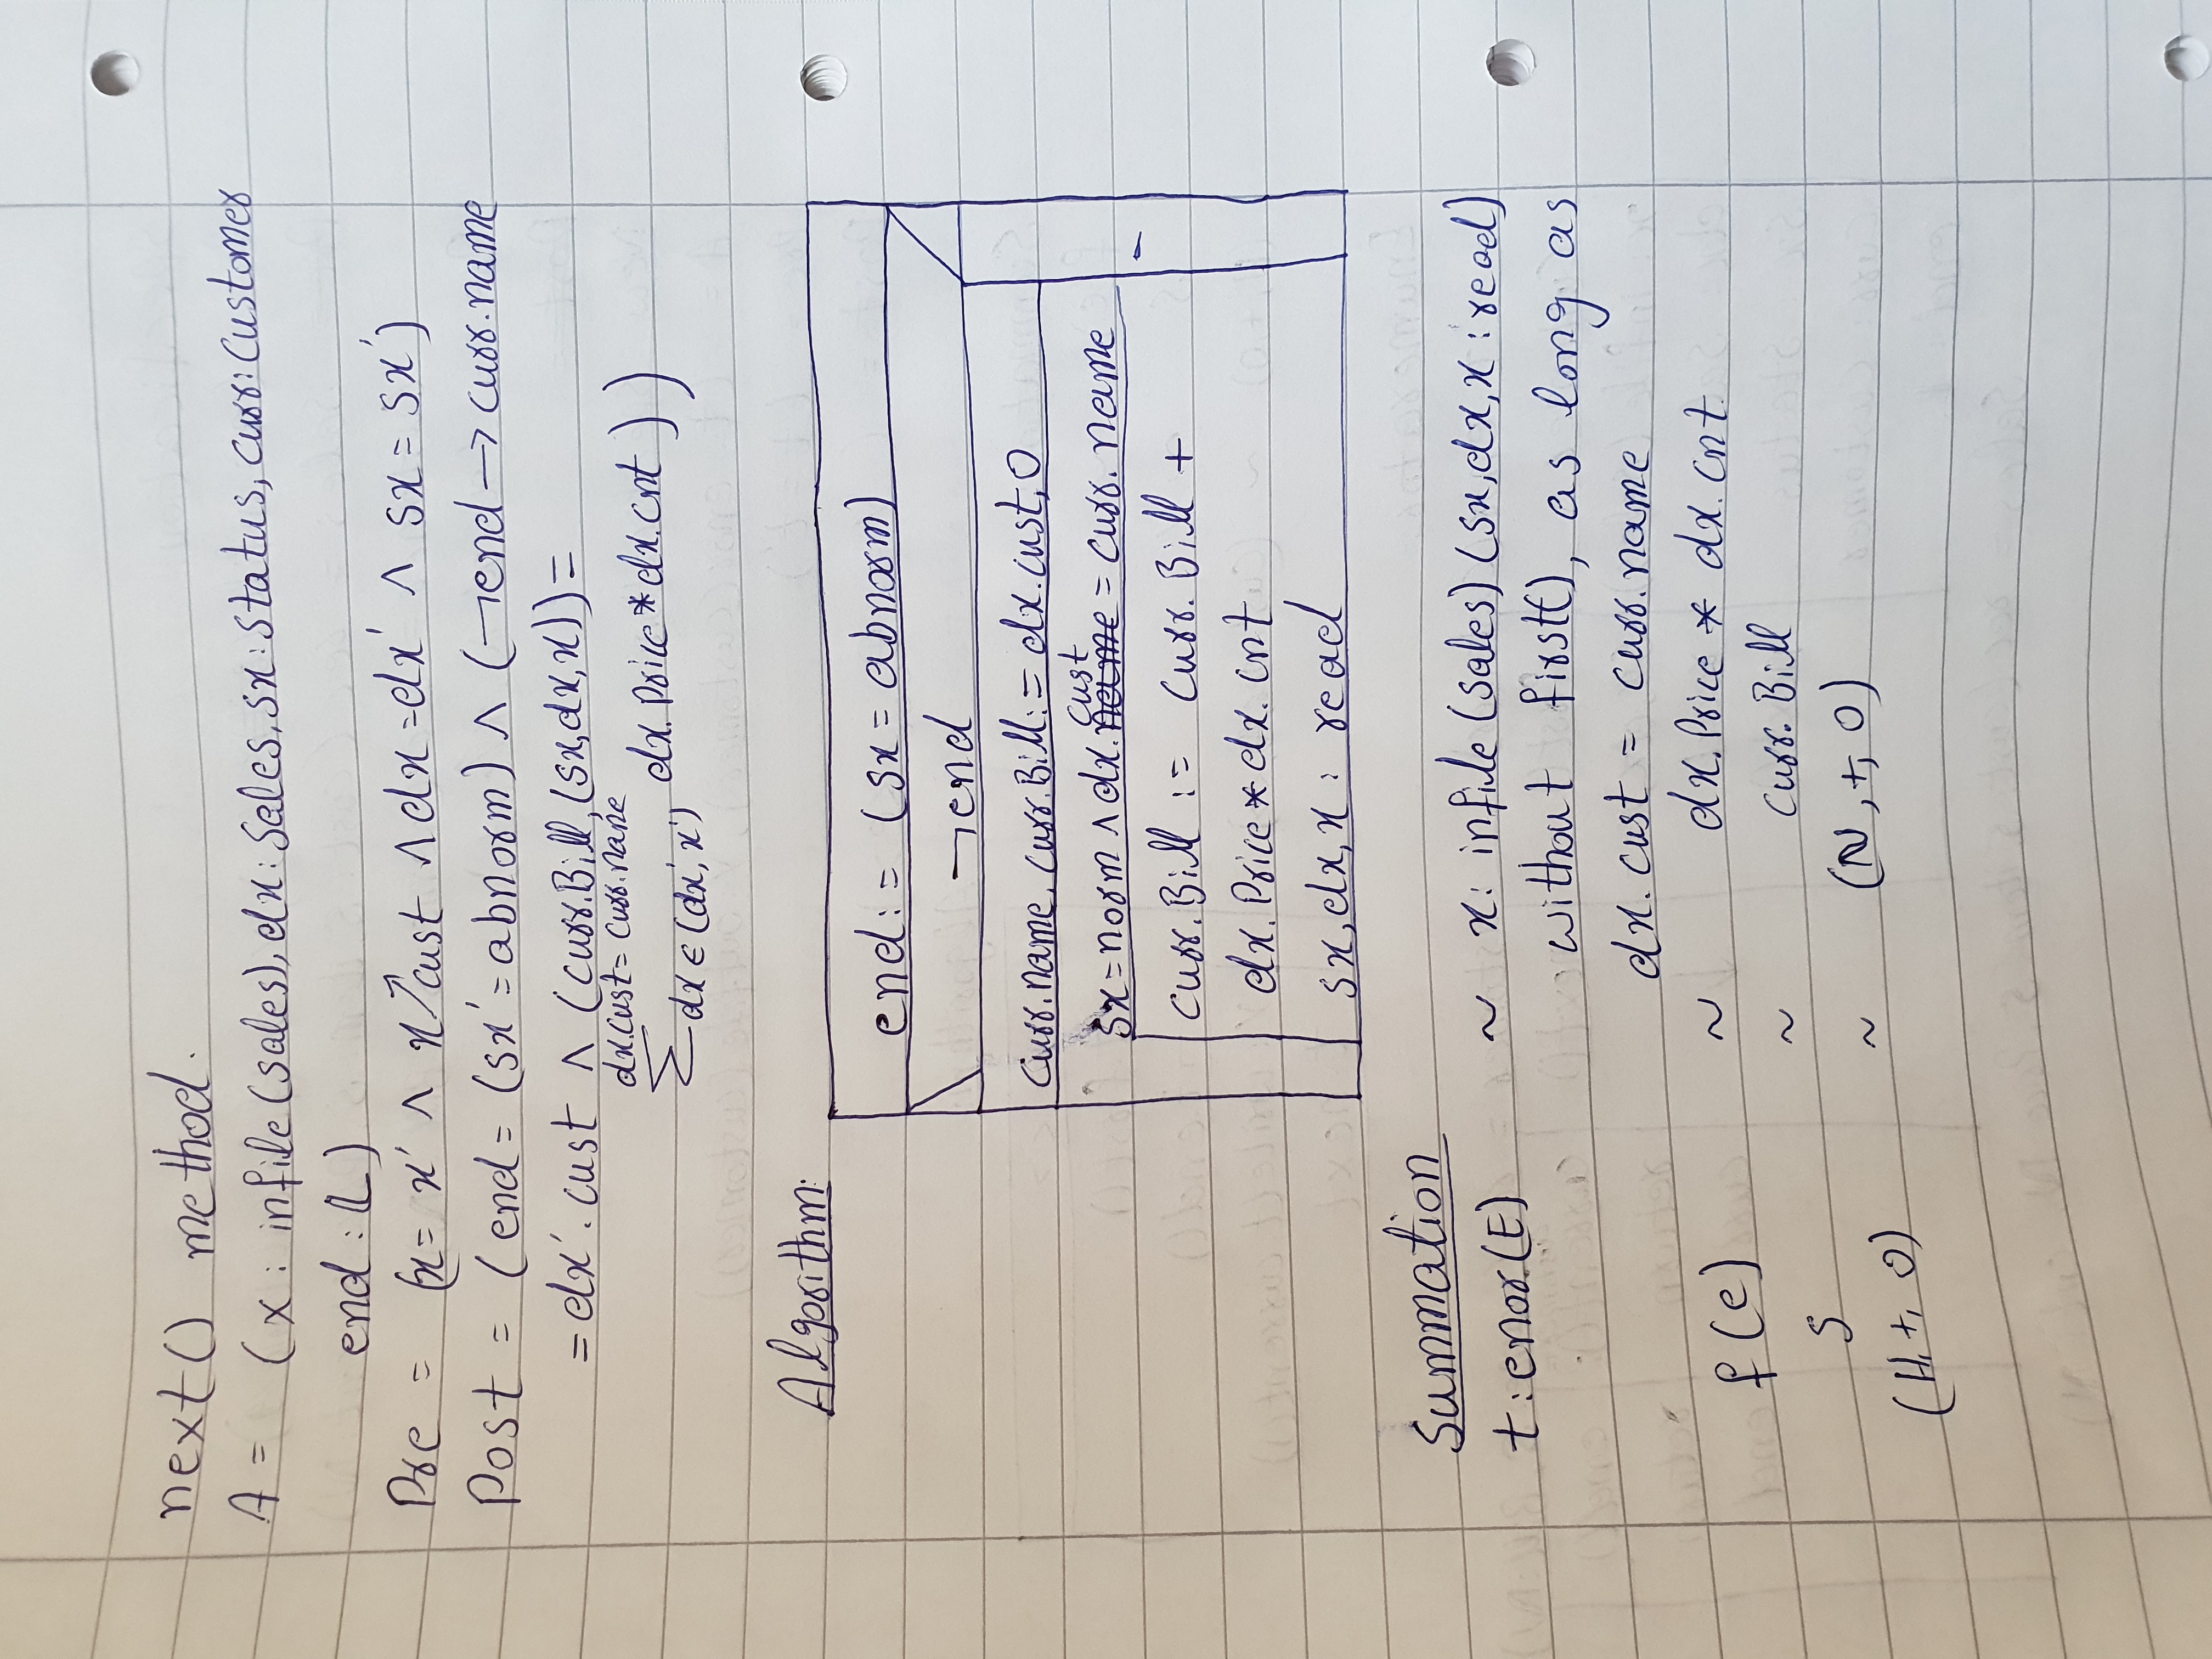 next() method.
A = (x : infile(sales), dx : Sales, sx : Status, curr : Customer
end : 𝕃)
Pre = (x = x' ∧ x↗cust ∧ dx = dx' ∧ sx = sx')
Post = (end = (sx' = abnorm) ∧ (¬end → curr.name
= dx'.cust ∧ (curr.Bill, (sx, dx, x)) =
dx.cust = curr.name
∑ dx ∈ (dx', x') dx.Price * dx.cnt ) )
Algorithm:
end := (sx = abnorm)
¬end
curr.name, curr.Bill := dx.cust, 0
cust
sx = norm ∧ dx.name = curr.name
-
curr.Bill := curr.Bill +
dx.Price * dx.cnt
sx, dx, x : read
Summation
t : enor(E) ~ x : infile(sales) (sx, dx, x : read)
without first(), as long as
dx.cust = curr.name
f(e) ~ dx.Price * dx.cnt
s ~ curr.Bill
(H, +, 0) ~ (ℕ, +, 0)